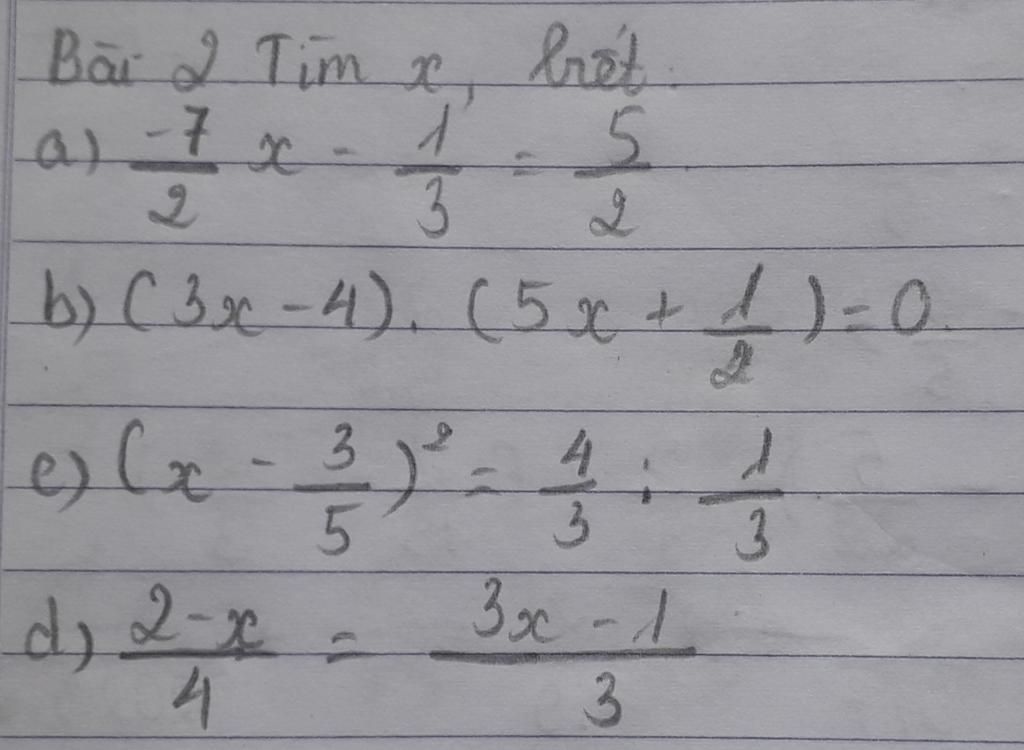 Bài 2 Tìm x, biết.
a) -7/2 x - 1/3 = 5/2
b) (3x - 4) . (5x + 1/2) = 0.
c) (x - 3/5)² = 4/3 : 1/3
d) 2-x/4 = 3x - 1/3